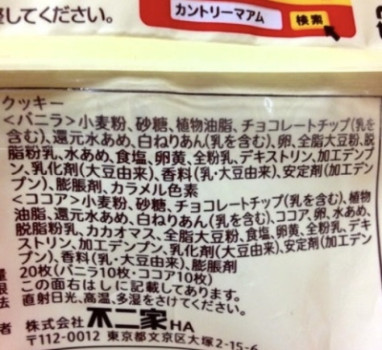 してください。
カントリーマアム 検索
クッキー
<バニラ>小麦粉、砂糖、植物油脂、チョコレートチップ(乳を
含む)、還元水あめ、白ねりあん(乳を含む)、卵、全脂大豆粉、脱
脂粉乳、水あめ、食塩、卵黄、全粉乳、デキストリン、加工デンプ
ン、乳化剤(大豆由来)、香料(乳・大豆由来)、安定剤(加工デン
プン)、膨脹剤、カラメル色素
<ココア>小麦粉、砂糖、チョコレートチップ(乳を含む)、植物
油脂、還元水あめ、白ねりあん(乳を含む)、ココア、卵、水あめ、
脱脂粉乳、カカオマス、全脂大豆粉、食塩、卵黄、全粉乳、デキ
ストリン、加工デンプン、乳化剤(大豆由来)、安定剤(加工デン
プン)、香料(乳・大豆由来)、膨脹剤
量 20枚(バニラ10枚・ココア10枚)
限 この面右はしに記載してあります。
法 直射日光、高温、多湿をさけてください。
者 株式会社 不二家 HA
〒112-0012 東京都文京区大塚2-15-6